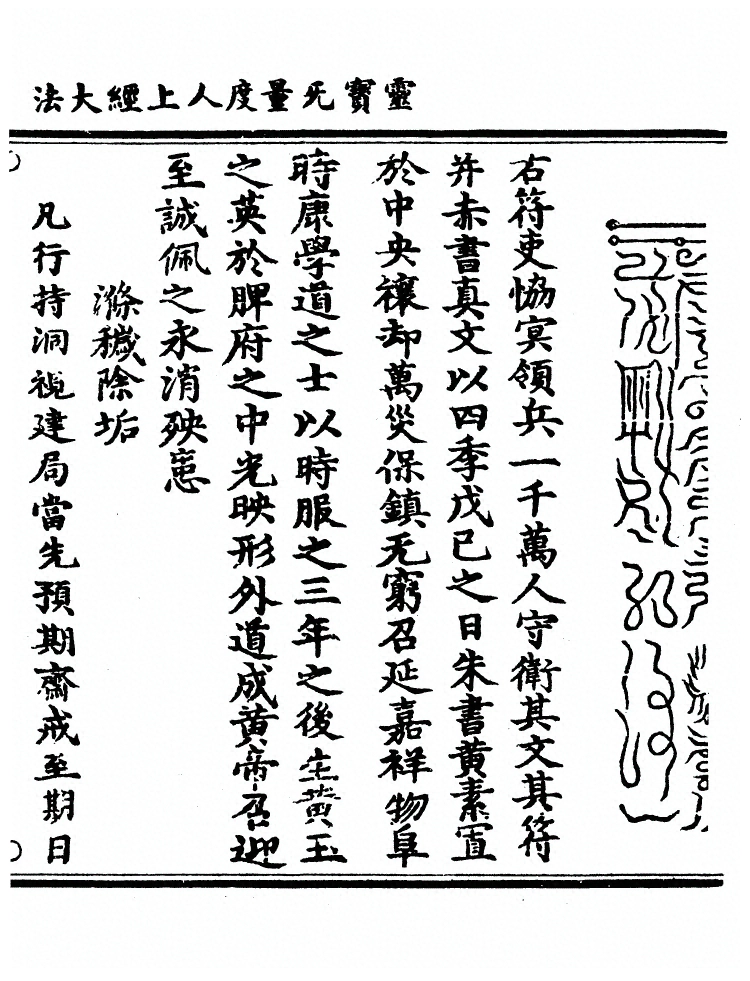 靈寶无量度人上經大法
右符吏協冥領兵一千萬人守衛其文其符
并赤書真文以四季戊己之日朱書黄素置
於中央禳却萬災保鎮无窮召延嘉祥物阜
時康學道之士以時服之三年之後生黄玉
之英於脾府之中光映形外道成黄帝召迎
至誠佩之永消殃患
滌穢除垢
凡行持洞視建局當先預期齋戒至期日